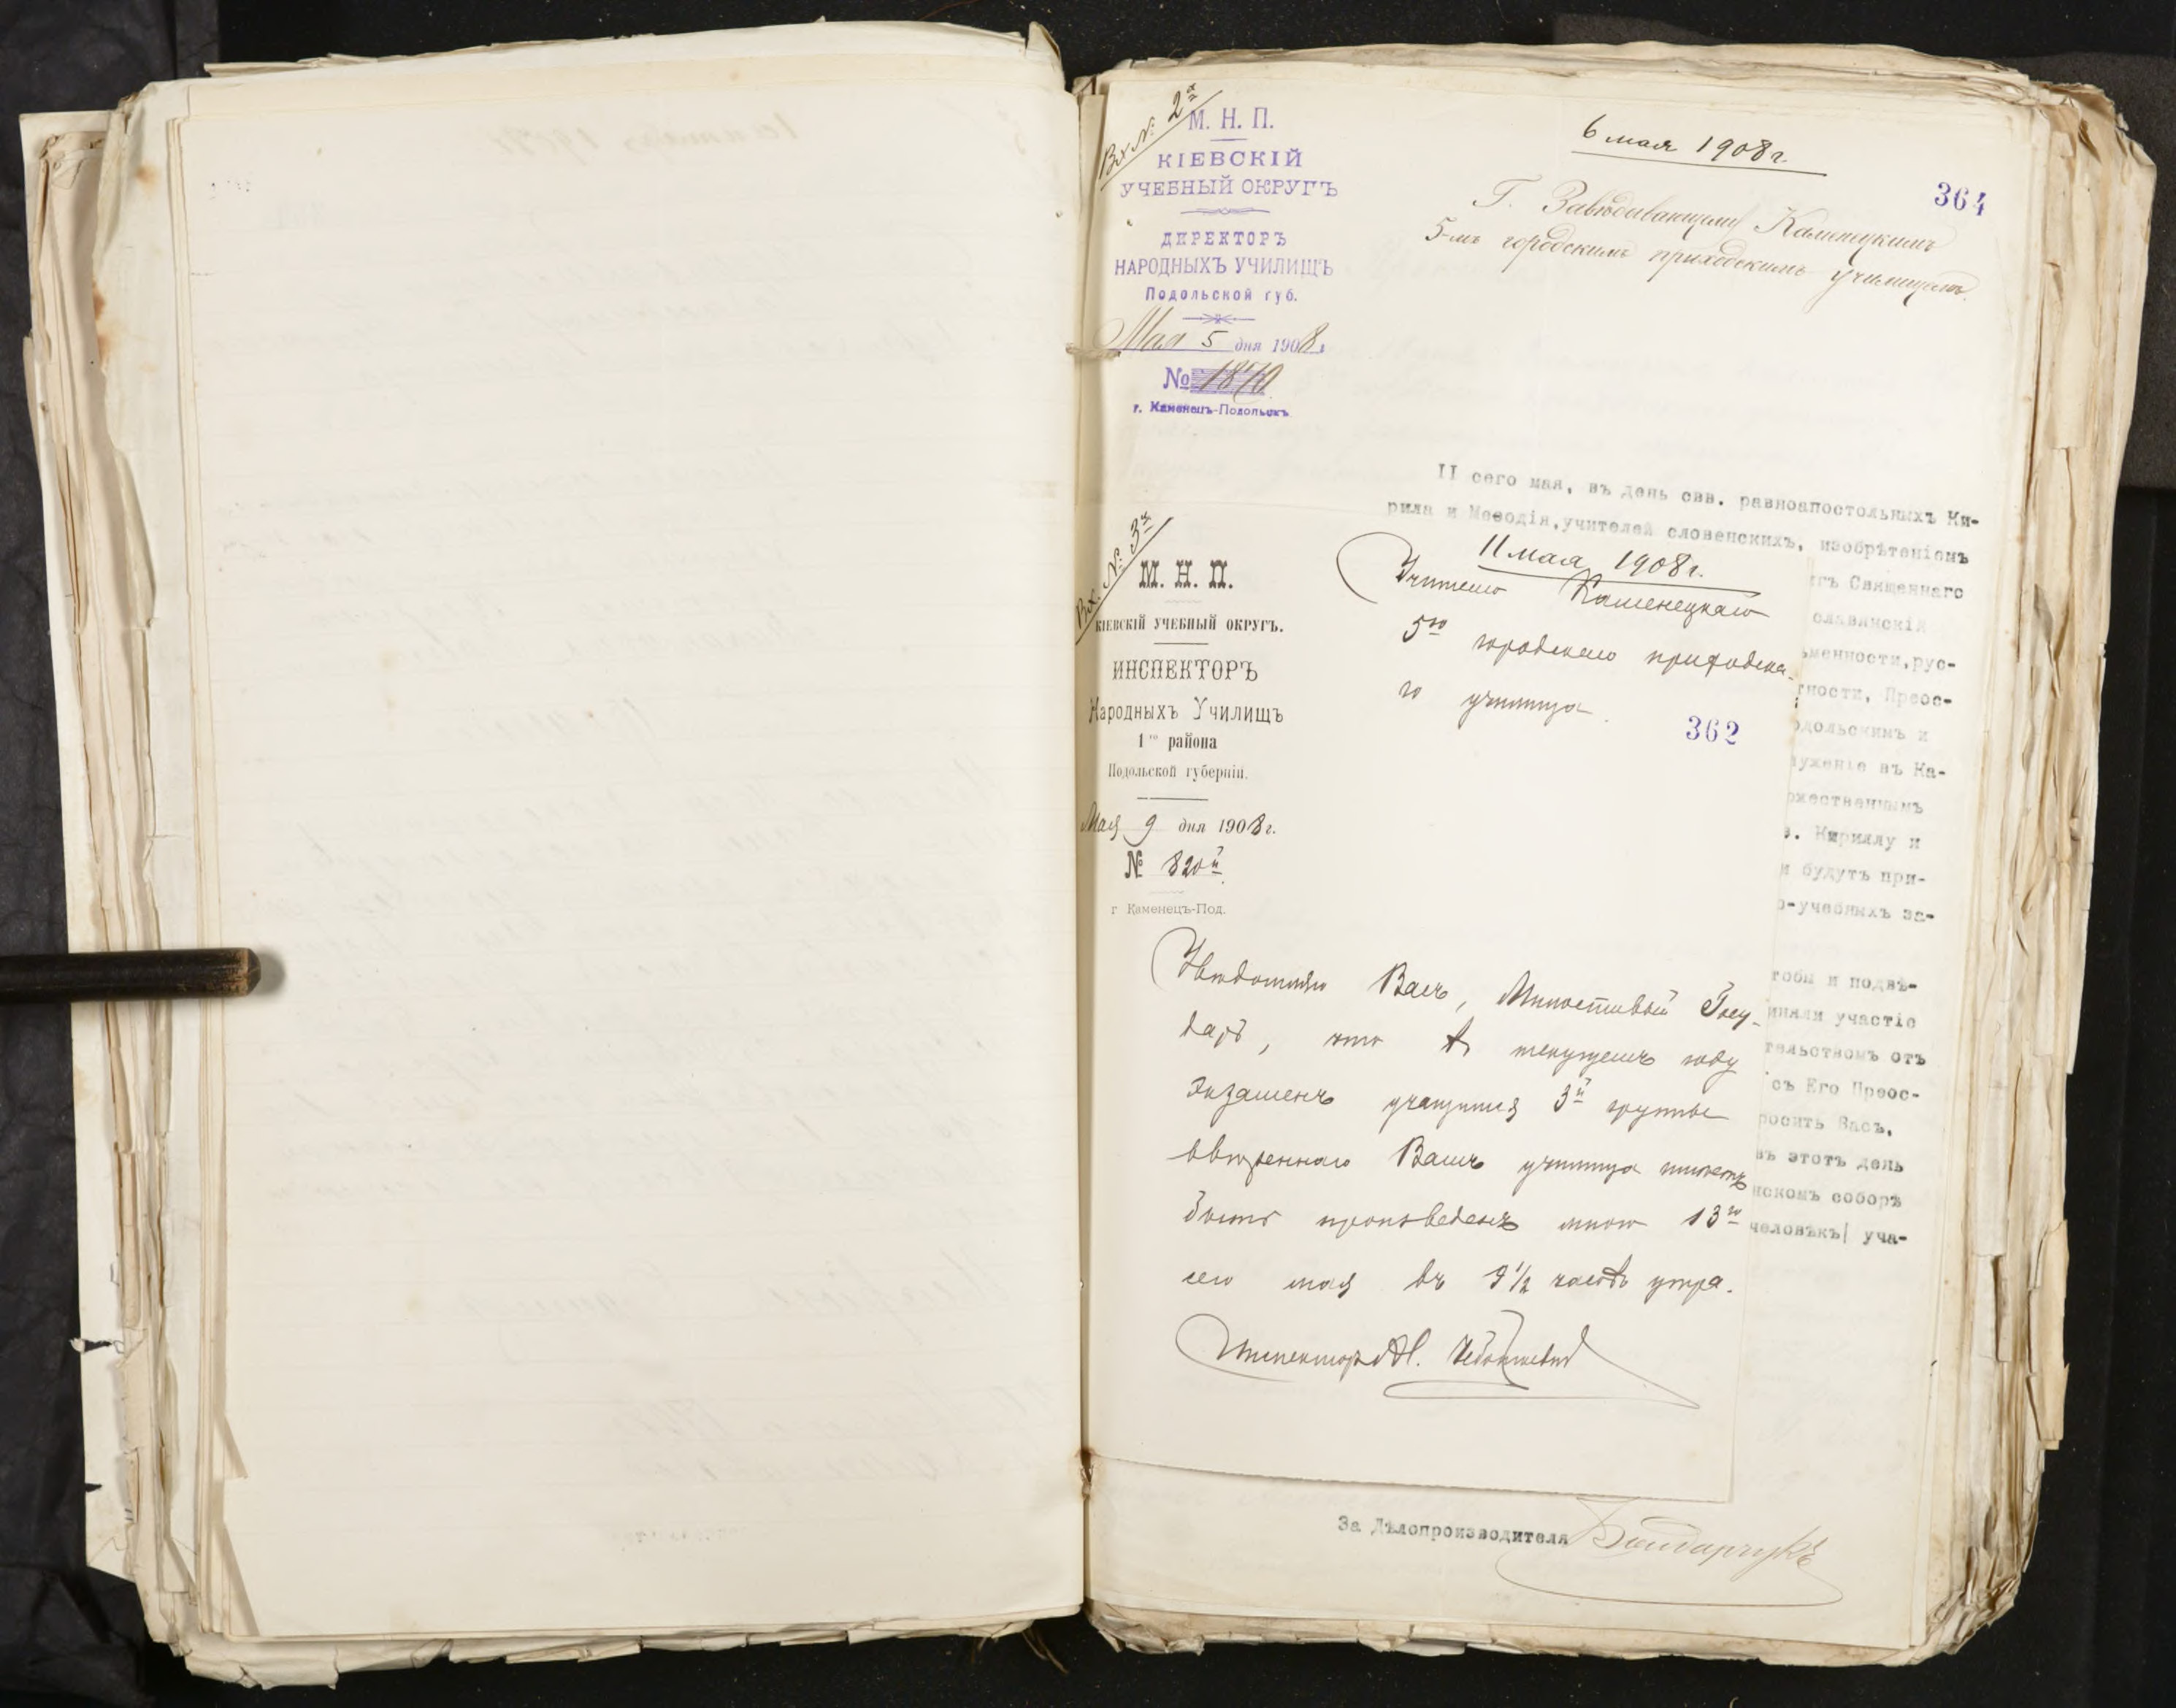 Вх. №: 2й
М. Н. П.
КІЕВСКІЙ
УЧЕБНЫЙ ОКРУГЪ
ДИРЕКТОРЪ
НАРОДНЫХЪ УЧИЛИЩЪ
Подольской губ.
Мая 5 дня 1908 г.
№ 1870
г. Каменецъ-Подольскъ
6 мая 1908 г.
364
Г. Завѣдывающему Каменецкимъ
5-мъ городскимъ приходскимъ училищемъ.
II сего мая, въ день свв. равноапостольныхъ Ки-
рила и Меѳодія, учителей словенскихъ, изобрѣтеніемъ
гъ Священнаго
славянскій
ьменности, рус-
ности, Преос-
одольскимъ и
луженіе въ Ка-
ожественнымъ
в. Кириллу и
и будутъ при-
о-учебныхъ за-
тобы и подвѣ-
иняли участіе
тельствомъ отъ
съ Его Преос-
росить Васъ,
въ этотъ день
нскомъ соборѣ
человѣкъ/ уча-
За Дѣлопроизводителя Бондарчукъ
Вх. №: 3й
М. Н. П.
КІЕВСКІЙ УЧЕБНЫЙ ОКРУГЪ.
ИНСПЕКТОРЪ
Народныхъ Училищъ
1го района
Подольской губерніи.
Мая 9 дня 1908 г.
№ 820й
г Каменецъ-Под.
11 мая 1908 г.
Учителю Каменецкаго
5го городского приходска-
го училища.
362
Увѣдомляю Васъ, Милостивый Госу-
дарь, что въ текущемъ году
экзаменъ учащимся 3й группы
ввѣреннаго Вамъ училища имѣетъ
быть произведенъ мною 13го
сего мая въ 9½ часовъ утра.
Инспекторъ